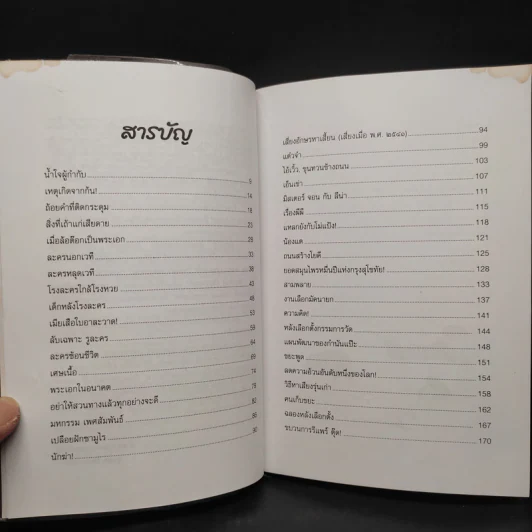 สารบัญ
น้ำใจผู้กำกับ 9
เหตุเกิดจากกัน! 14
ถ้อยคำที่ติดกระดุม 18
สิ่งที่เถ้าแก่เสียดาย 23
เมื่อล้อต๊อกเป็นพระเอก 28
ละครนอกเวที 33
ละครหลุดเวที 38
โรงละครใกล้โรงหวย 43
เด็กหลังโรงละคร 49
เมียเสือใบอาละวาด!
ลับเฉพาะ รูละคร 59
ละครซ้อนชีวิต 64
เศษเนื้อ 69
พระเอกในอนาคต 74
อย่าให้สวนทางแล้วทุกอย่างจะดี
มหกรรม เพศสัมพันธ์ 86
เปลือยฝักซามูไร
นักฆ่า! 90
เสี่ยงอักษรหาเสี้ยน (เสี่ยงเมื่อ พ.ศ. ๒๕๔๓) 94
แต๋วจ๋า 99
ไอ้เว้ง, ขุนทวนข้างถนน 103
เอ็นเข่า 107
มิสเตอร์ จอน กับ ลีน่า 111
เรื่องผีผี 115
แหลกยังกับโม่แป้ง! 118
น้องแต 121
ถนนสร้างไยดี 125
ยอดสมุนไพรหมื่นปีแห่งกรุงสุโขทัย! 128
สามพลาย 133
งานเลือกมัคนายก 137
ความคิด! 141
หลังเลือกตั้งกรรมการวัด 144
แผนพัฒนาของกำนันแป๊ะ 148
ขยะพูด 151
ลดความอ้วนอันดับหนึ่งของโลก! 154
วิธีหาเสียงรุ่นเก่า 158
คนเก็บขยะ 162
ฉลองหลังเลือกตั้ง 167
ขบวนการรีแพร์ ตุ๊ด! 170